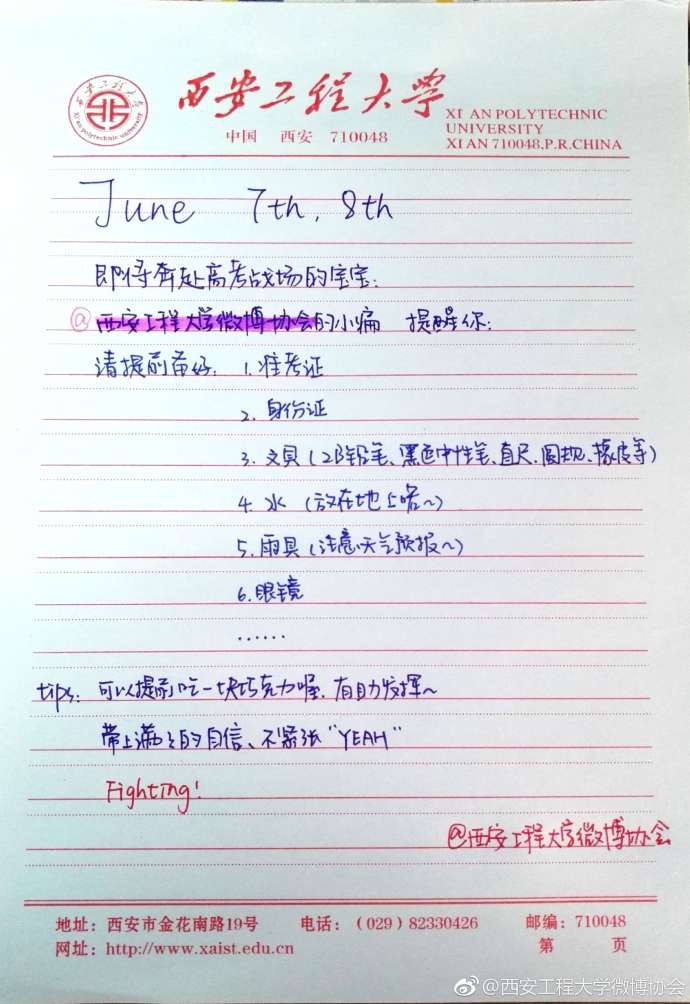 西安工程大学
XI AN POLYTECHNIC
UNIVERSITY
XI AN 710048.P.R.CHINA
中国 西安 710048
西安工程大学
Xi'an polytechnic university
June 7th, 8th
即将奔赴高考战场的宝宝:
@西安工程大学微博协会的小编 提醒你:
请提前备好: 1.准考证
2.身份证
3.文具(2B铅笔、黑色中性笔、直尺、圆规、橡皮等)
4.水(放在地上喏~)
5.雨具(注意天气预报~)
6.眼镜
......
tips: 可以提前吃一块巧克力喔,有助发挥~
带上满满的自信、不紧张"YEAH"
Fighting!
@西安工程大学微博协会
地址:西安市金花南路19号 电话:(029)82330426 邮编:710048
网址:http://www.xaist.edu.cn 第 页
@西安工程大学微博协会